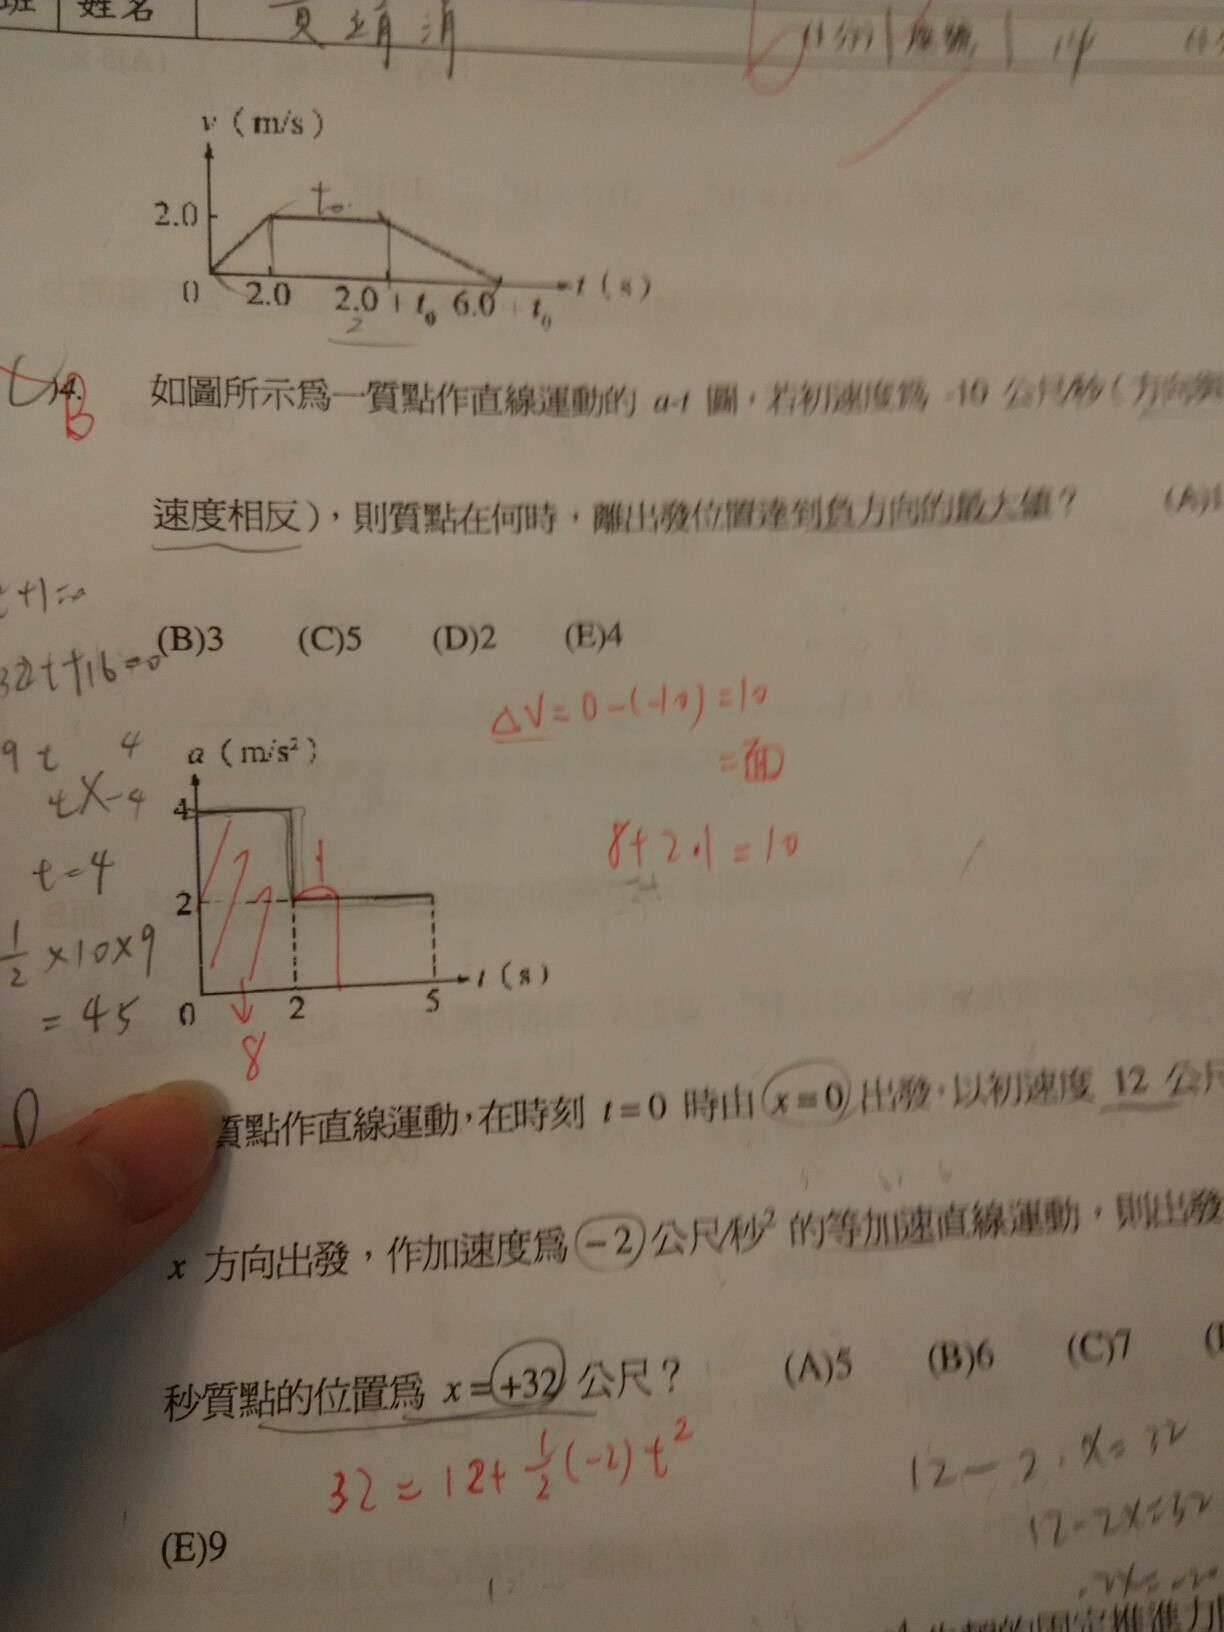 姓名
v（m/s）
t₀
2.0
0 2.0 2.0 + t₀ 6.0 + t₀ t（s）
2
B
)4. 如圖所示為一質點作直線運動的 a-t 圖，若初速度為 -10 公尺/秒（
速度相反），則質點在何時，離出發位置達到負方向的最大值？ (A)1
(B)3 (C)5 (D)2 (E)4
+1=0
32t+16=0
ΔV=0-(-10)=10
=面
8+2·1=10
a（m/s²）
4
2
1
0 2 5 t（s）
8
9 t 4
t X -4
t=4
1/2 ×10×9
=45
質點作直線運動，在時刻 t=0 時由 x=0 出發，以初速度 12 公尺
x 方向出發，作加速度為 -2 公尺/秒² 的等加速直線運動，則出發
秒質點的位置為 x=+32 公尺？ (A)5 (B)6 (C)7
32=12+1/2(-2)t²
12-2·x=32
12-2x=32
(E)9